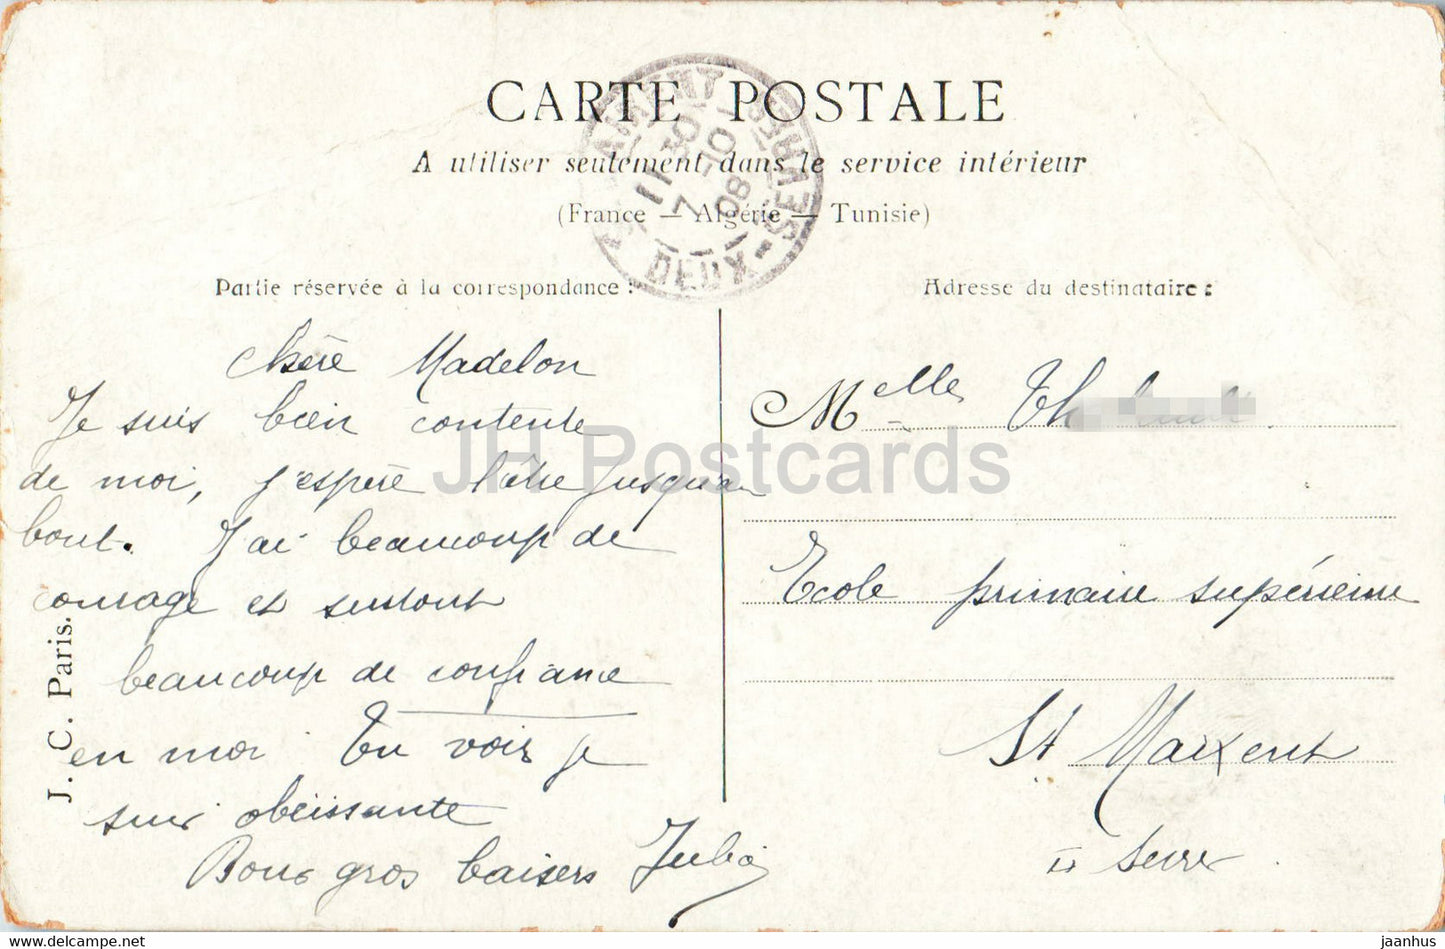 CARTE POSTALE
A utiliser seulement dans le service intérieur
(France — Algérie — Tunisie)
11 30
7 -10
08
DEUX-SEVRES
Partie réservée à la correspondance :
Chère Madelon
Je suis bien contente
de moi, j'espère l'être jusqu'au
bout. J'ai beaucoup de
courage et surtout
beaucoup de confiance
en moi Tu vois je
suis obeissante
Bons gros baisers Julia
J. C. Paris.
Adresse du destinataire :
Melle Th
Ecole primaire supérieure
St Maixent
Sevres
JH Postcards
delcampe.net
jaanhus